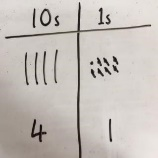 10s 1s
4 1